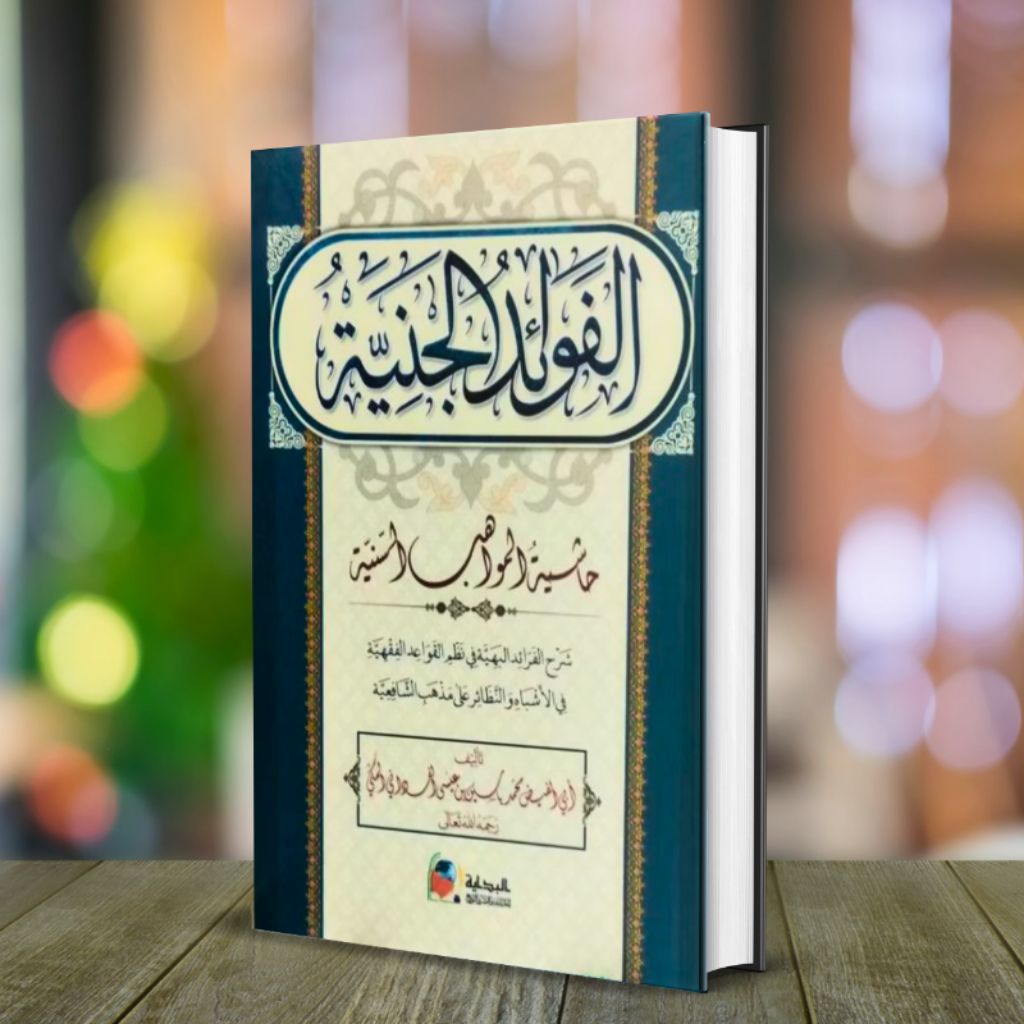 الفَوَائِدُ الجَنِيَّةُ
حاشيةُ المواهب السّنيّة
شَرْح الفَرَائِد البَهيَّة في نَظْمِ القَوَاعِد الفِقْهيَّة
في الأَشبَاهِ وَالنَّظَائِر عَلىٰ مَذْهَبِ الشَّافِعيَّة
تأليف
أبي الفيض محمد ياسين بن عيسى الفاداني المكي
رَحِمَهُ اللهُ تَعَالَى
البداية